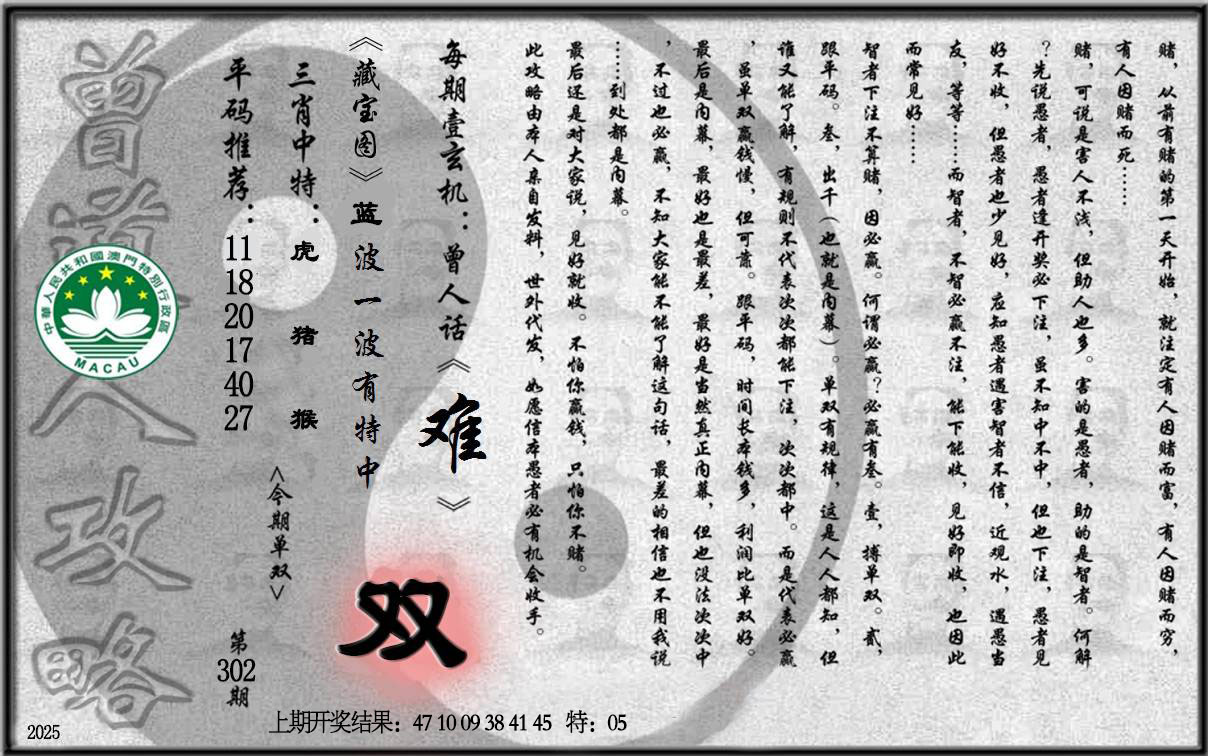 赌，从前有赌的第一天开始，就注定有人因赌而富，有人因赌而穷，
有人因赌而死……
赌，可说是害人不浅，但助人也多。害的是愚者，助的是智者。何解
？先说愚者，愚者逢开奖必下注，虽不知中不中，但也下注，愚者见
好不收，但愚者也少见好，应知愚者遇害智者不信，近观水，遇愚当
友，等等……而智者，不智必赢不注，能下能收，见好即收，也因此
而常见好……
智者下注不算赌，因必赢。何谓必赢？必赢有叁。壹，搏单双。贰，
跟平码。叁，出千（也就是内幕）。单双有规律，这是人人都知，但
谁又能了解，有规则不代表次次都能下注，次次都中。而是代表必赢
，虽单双赢钱慢，但可靠。跟平码，时间长本钱多，利润比单双好。
最后是内幕，最好也是最差，最好是当然真正内幕，但也没法次次中
，不过也必赢，不知大家能不能了解这句话，最差的相信也不用我说
……到处都是内幕。
最后还是对大家说，见好就收。不怕你赢钱，只怕你不赌。
此攻略由本人亲自发料，世外代发，如愿信本愚者必有机会收手。
每期壹玄机：曾人话《难》
《藏宝图》蓝波一波有特中
三肖中特：虎 猪 猴
平码推荐：11 18 20 17 40 27
<今期单双>
双
第302期
曾道人攻略
中華人民共和國澳門特別行政區
MACAU
上期开奖结果：47 10 09 38 41 45 特：05
2025